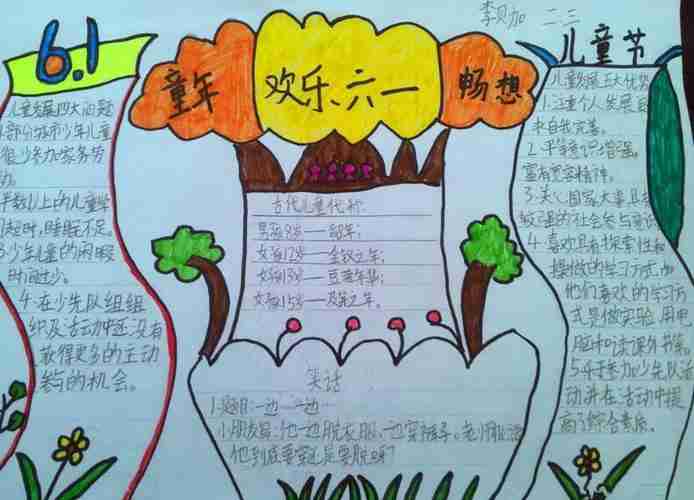 李贝加 二.三
6.1
童年
欢乐六一
畅想
儿童节
儿童发展四大问题
部分城市少年儿童
很少参加家务劳
动。
半数以上的儿童学
习超时,睡眠不足。
3少年儿童的闲暇
时间过少。
4.在少先队组织
织及活动中还没有
获得更多的主动
参与的机会。
古代儿童代称:
男孩8岁——龆年;
女孩12岁——金钗之年;
女孩13岁——豆蔻年华;
女孩15岁——及笄之年。
笑话
1.题目:一边……一边…
小朋友写:他一边脱衣服,一边穿裤子。老师批语:
他到底要穿还是要脱呀?
儿童发展五大优势
1.注重个人发展
求自我完善。
2.平等意识增强。
富有宽容精神。
3.关心国家大事具有
较强的社会参与意识
4.喜欢具有探索性和
操做的学习方式如
他们喜欢的学习方
式是做实验.用电
脑和读课外书等。
5.积极参加少先队活
动并在活动中提
高了综合素质。